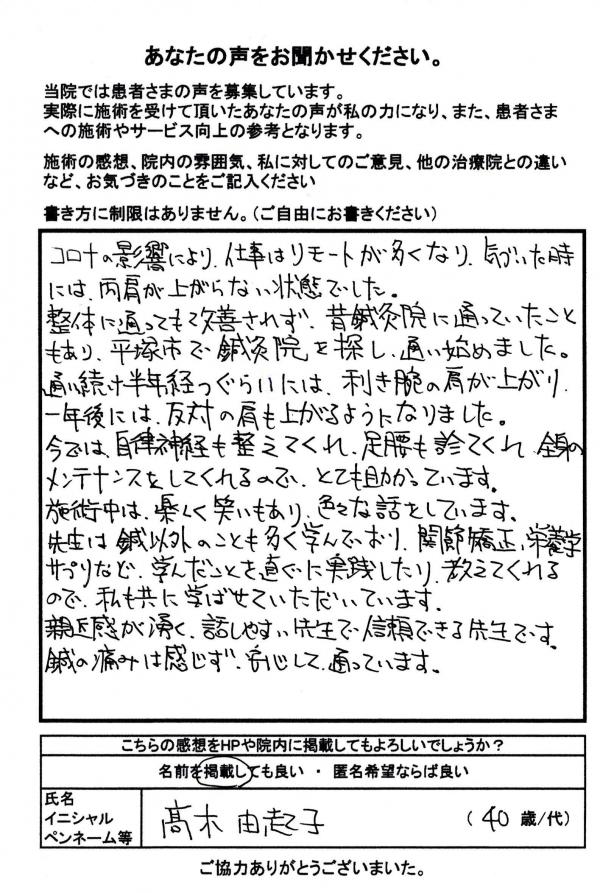 あなたの声をお聞かせください。
当院では患者さまの声を募集しています。
実際に施術を受けて頂いたあなたの声が私の力になり、また、患者さま
への施術やサービス向上の参考となります。
施術の感想、院内の雰囲気、私に対してのご意見、他の治療院との違い
など、お気づきのことをご記入ください
書き方に制限はありません。（ご自由にお書きください）
コロナの影響により、仕事はリモートが多くなり、気づいた時
には、両肩が上がらない状態でした。
整体に通っても改善されず、昔鍼灸院に通っていたこと
もあり、平塚市で鍼灸院を探し、通い始めました。
通い続け半年経つぐらいには、利き腕の肩が上がり、
一年後には、反対の肩も上がるようになりました。
今では、自律神経も整えてくれ、足腰も診てくれ、全身の
メンテナンスをしてくれるので、とても助かっています。
施術中は、楽しく笑いもあり、色々な話をしています。
先生は鍼以外のことも多く学んでおり、関節矯正、栄養学
サプリなど、学んだことを直ぐに実践したり、教えてくれる
ので、私も共に学ばせていただいています。
親近感が湧く、話しやすい先生で信頼できる先生です。
鍼の痛みは感じず、安心して通っています。
こちらの感想をHPや院内に掲載してもよろしいでしょうか？
名前を掲載しても良い ・ 匿名希望ならば良い
氏名
イニシャル
ペンネーム等
髙木 由起子 （ 40 歳/代）
ご協力ありがとうございまいた。